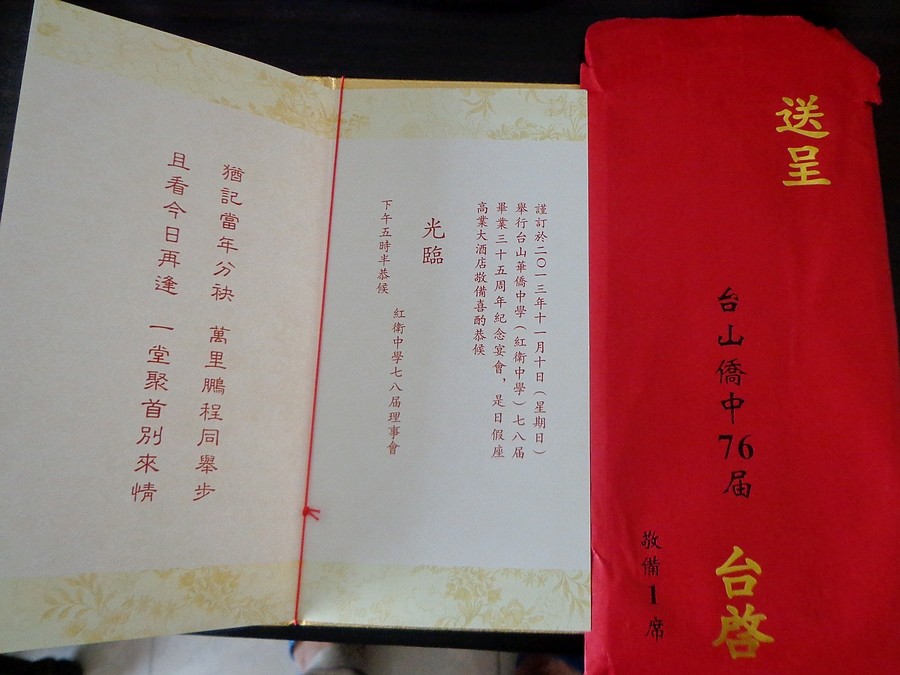 猶記當年分袂 萬里鵬程同舉步
且看今日再逢 一堂聚首別來情
謹訂於二〇一三年十一月十日（星期日）
舉行台山華僑中學（紅衛中學）七八届
畢業三十五周年紀念宴會，是日假座
高業大酒店敬備喜酌恭候
光臨
下午五時半恭候
紅衛中學七八届理事會
送呈
台山僑中76届
台啓
敬備1席